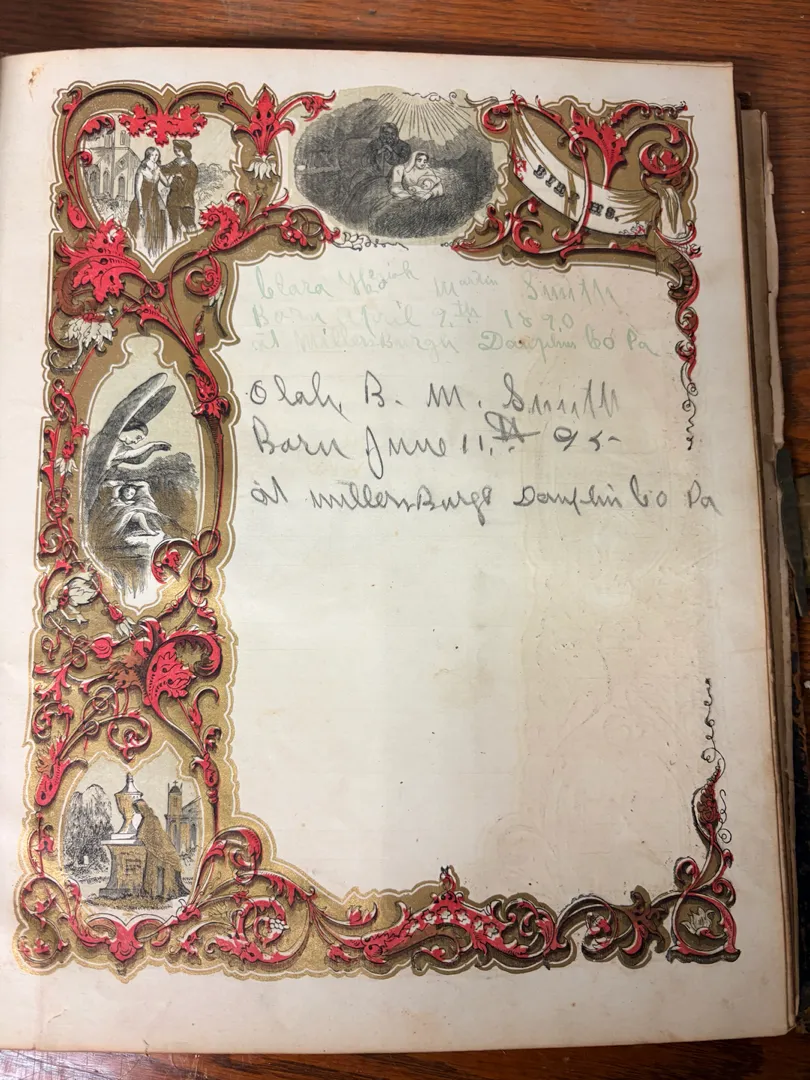 BIRTHS.
Clara Martin Smith
Born April 9th 1890
at Millersburgh Dauphin Co Pa
Olah, B. M. Smith
Born June 11th 95
at millersBurgh Dauphin Co Pa